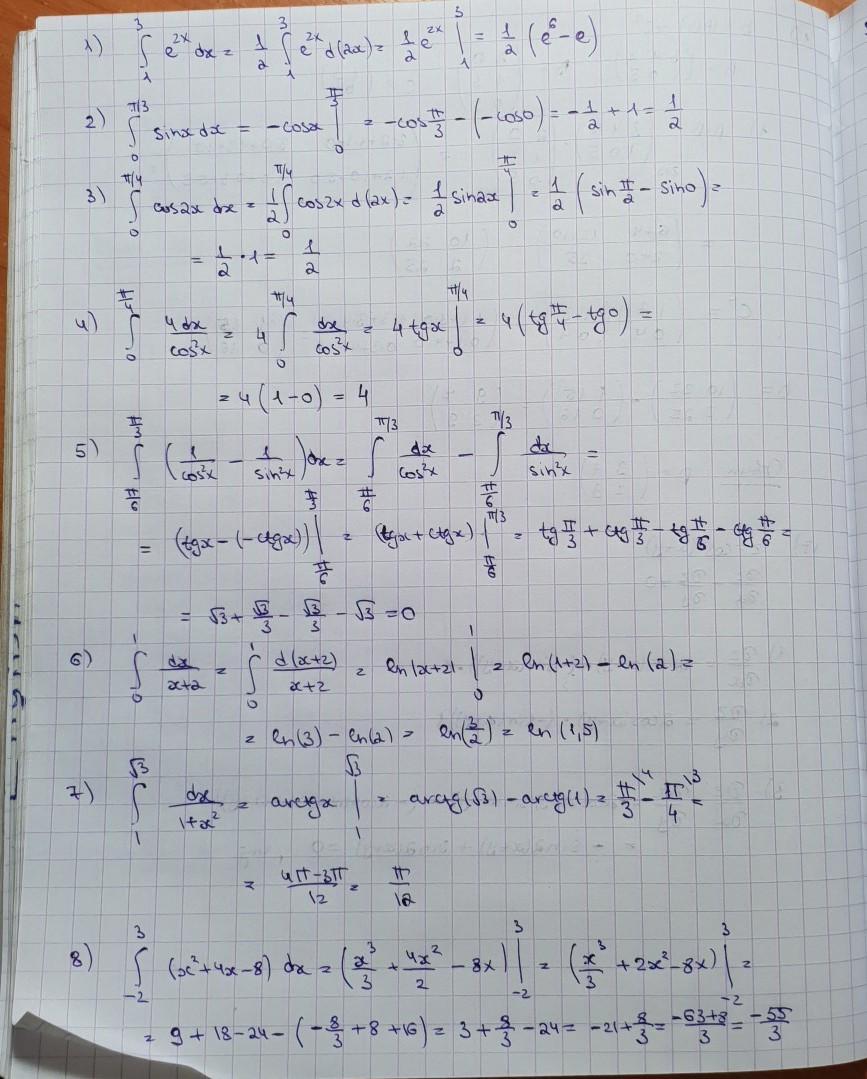 1) ∫₁³ e^(2x) dx = 1/2 ∫₁³ e^(2x) d(2x) = 1/2 e^(2x) |₁³ = 1/2 (e⁶ - e)
2) ∫₀^(π/3) sinx dx = -cosx |₀^(π/3) = -cos π/3 - (-cos0) = -1/2 + 1 = 1/2
3) ∫₀^(π/4) cos2x dx = 1/2 ∫₀^(π/4) cos2x d(2x) = 1/2 sin2x |₀^(π/4) = 1/2 (sin π/2 - sin0) =
= 1/2 · 1 = 1/2
4) ∫₀^(π/4) 4dx/cos²x = 4 ∫₀^(π/4) dx/cos²x = 4 tgx |₀^(π/4) = 4(tg π/4 - tg0) =
= 4(1-0) = 4
5) ∫_(π/6)^(π/3) (1/cos²x - 1/sin²x)dx = ∫_(π/6)^(π/3) dx/cos²x - ∫_(π/6)^(π/3) dx/sin²x =
= (tgx - (-ctgx)) |_(π/6)^(π/3) = (tgx + ctgx) |_(π/6)^(π/3) = tg π/3 + ctg π/3 - tg π/6 - ctg π/6 =
= √3 + √3/3 - √3/3 - √3 = 0
6) ∫₀¹ dx/(x+2) = ∫₀¹ d(x+2)/(x+2) = ln|x+2| |₀¹ = ln(1+2) - ln(2) =
= ln(3) - ln(2) = ln(3/2) = ln(1,5)
7) ∫₁^(√3) dx/(1+x²) = arctgx |₁^(√3) = arctg(√3) - arctg(1) = π/3 \4 - π/4 \3 =
= (4π-3π)/12 = π/12
8) ∫₋₂³ (x²+4x-8) dx = (x³/3 + 4x²/2 - 8x) |₋₂³ = (x³/3 + 2x² - 8x) |₋₂³ =
= 9 + 18 - 24 - (-8/3 + 8 + 16) = 3 + 8/3 - 24 = -21 + 8/3 = (-63+8)/3 = -55/3